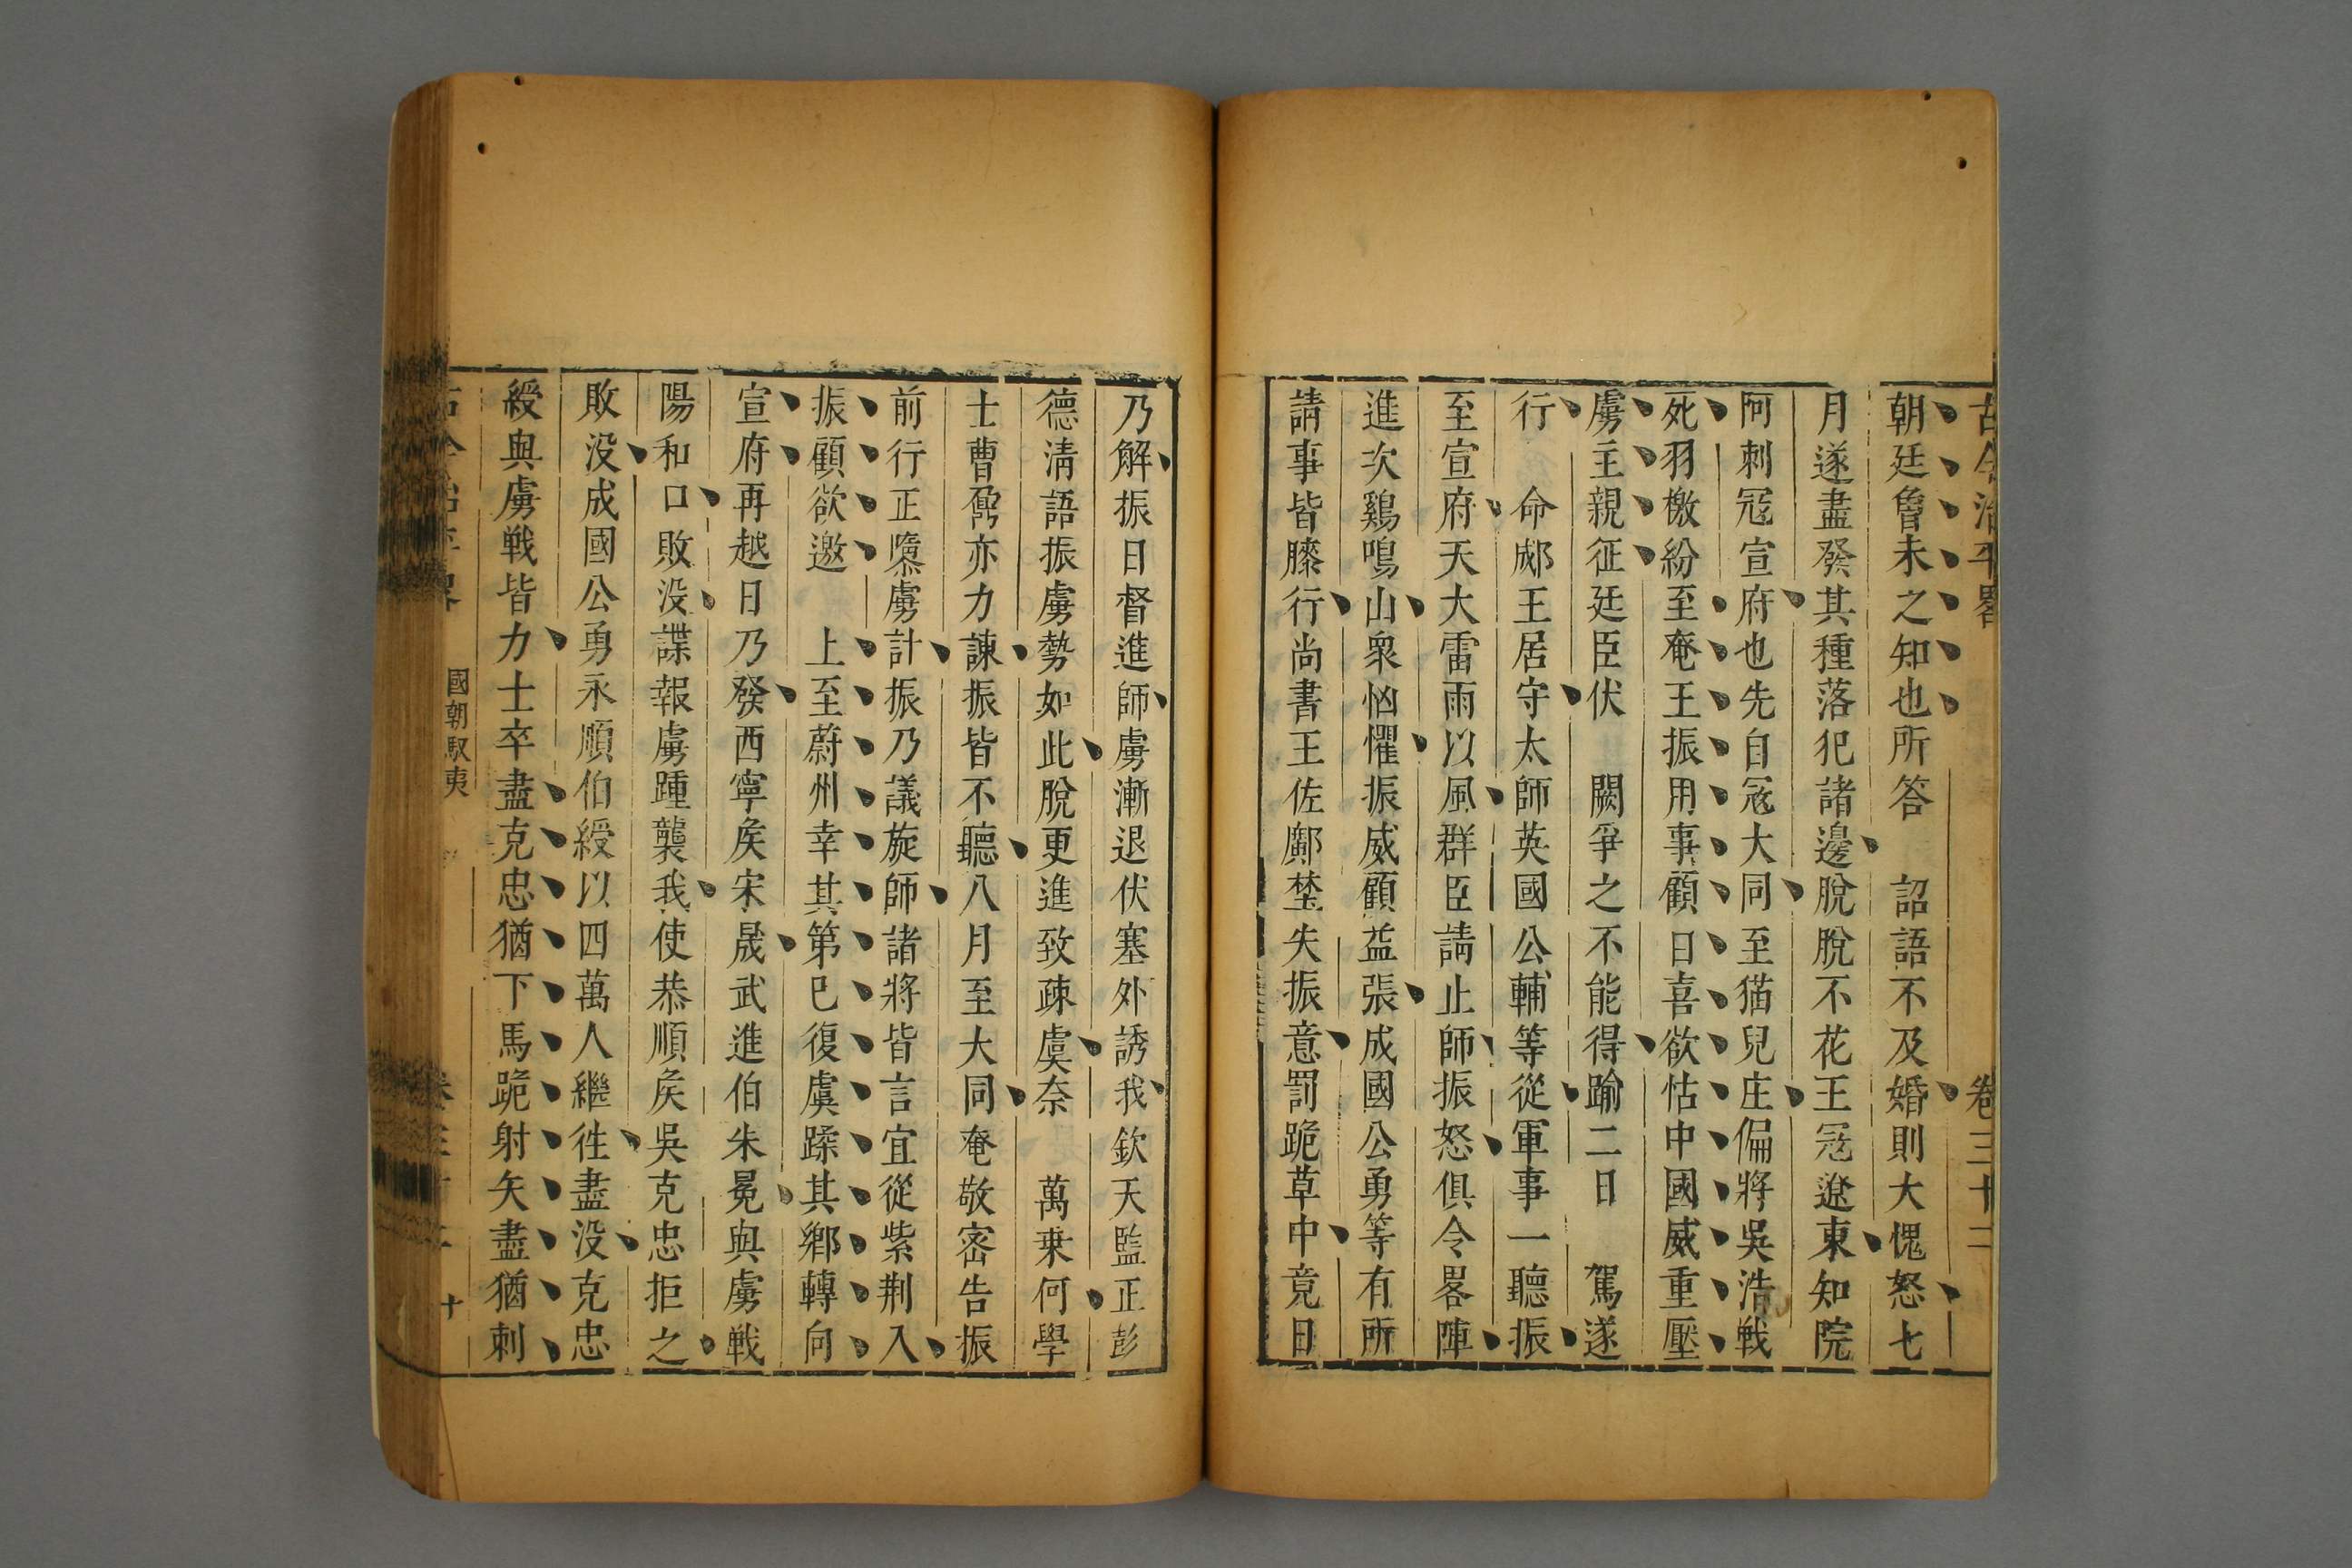 古今治平畧 卷三十二
朝廷魯未之知也所答 詔語不及婚則大愧怒七
月遂盡發其種落犯諸邊脫脫不花王宼遼東知院
阿刺宼宣府也先自宼大同至猫兒庄偏將吳浩戰
死羽檄紛至奄王振用事顧日喜欲怙中國威重壓
虜主親征廷臣伏 闕爭之不能得踰二日 駕遂
行 命郕王居守太師英國公輔等從軍事一聽振
至宣府天大雷雨以風群臣請止師振怒俱令畧陣
進次鷄鳴山衆恟懼振威顧益張成國公勇等有所
請事皆膝行尚書王佐鄺埜失振意罰跪草中竟日
乃解振日督進師虜漸退伏塞外誘我欽天監正彭
德淸語振虜勢如此脫更進致疎虞奈 萬乗何學
士曹鼐亦力諫振皆不聽八月至大同奄敬宻告振
前行正墮虜計振乃議旋師諸將皆言宜從紫荆入
振顧欲邀 上至蔚州幸其第已復虞蹂其鄉轉向
宣府再越日乃發西寧矦宋晟武進伯朱冕與虜戰
陽和口敗没諜報虜踵襲我使恭順矦吳克忠拒之
敗没成國公勇永順伯綬以四萬人繼徃盡没克忠
綬與虜戰皆力士卒盡克忠猶下馬跪射矢盡猶刺
國朝馭夷 十